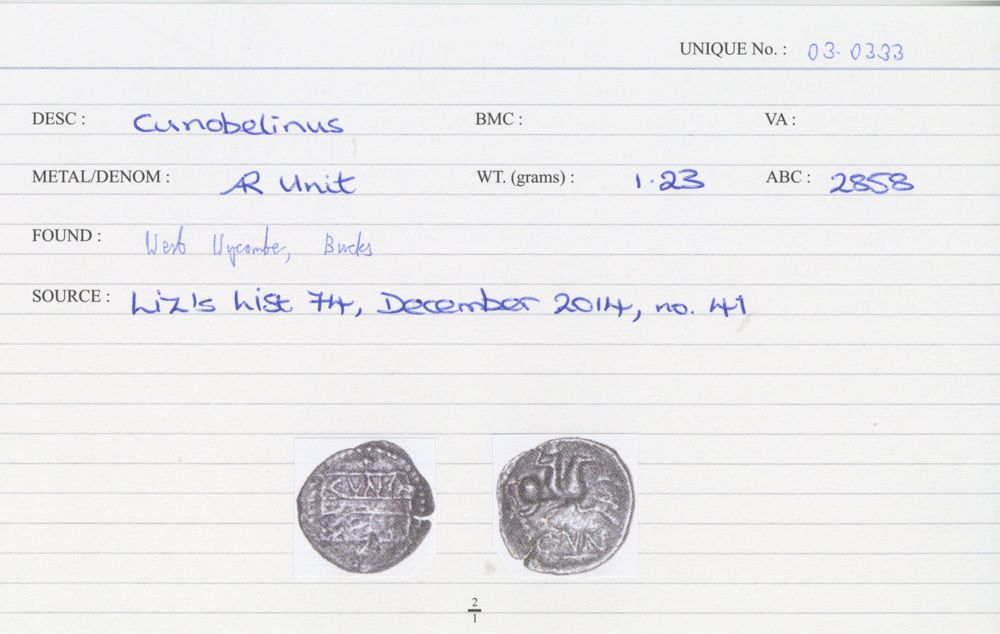 UNIQUE No. : 03-0333
DESC : Cunobelinus BMC : VA :
METAL/DENOM : AR Unit WT. (grams) : 1.23 ABC : 2858
FOUND : West Wycombe, Bucks
SOURCE : Liz's List 74, December 2014, no. 41
CUN
CVN
2
1